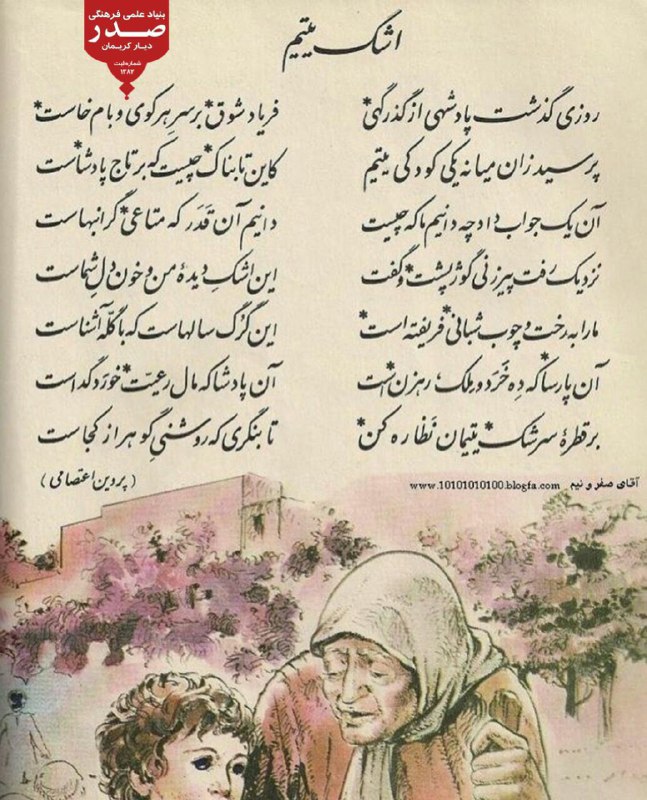 بنیاد علمی فرهنگی
صدر
دیار کریمان
شماره ثبت
۱۲۸۲
اشک یتیم
روزی گذشت پادشهی از گذرگهی* فریاد شوق* بر سر هر کوی و بام خاست*
پرسید زان میانه یکی کودکی یتیم کاین تابناک* چیست که بر تاج پادشاست
آن یک جواب داد چه دانیم ما که چیست دانیم آن قَدَر که متاعی* گرانبهاست
نزدیک رفت پیرزنی گوژپشت* و گفت این اشکِ دیدهٔ من و خون دلِ شماست
ما را به رخت و چوب شبانی* فریفته است* این گرگ سالهاست که با گلّه آشناست
آن پارسا* که ده خَرَد و ملک، رهزن* است آن پادشا که مال رعیّت* خورَد گداست
بر قطرهٔ سرشک* یتیمان نَظاره کن* تا بنگری که روشنیِ گوهر از کجاست
(پروین اعتصامی)
آقای صفر و نیم _ www.10101010100.blogfa.com